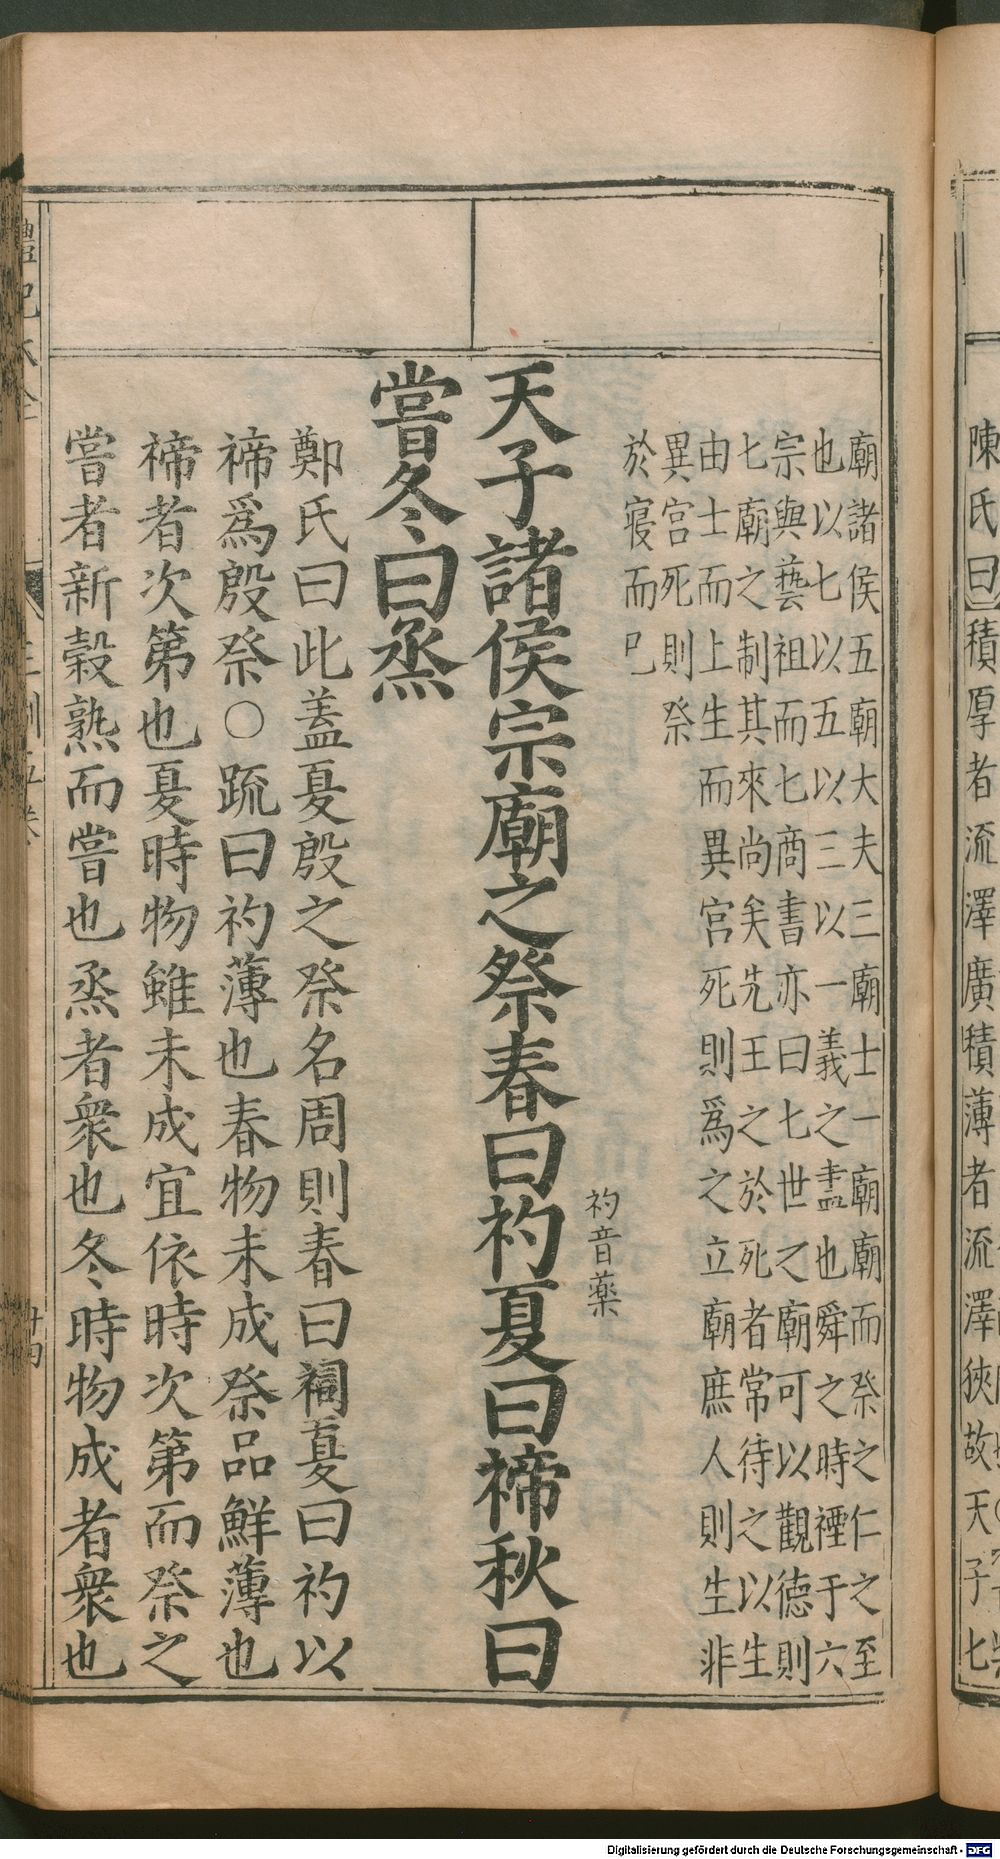 陳氏曰積厚者流澤廣積薄者流澤狹故天子七
廟諸侯五廟大夫三廟士一廟廟而祭之仁之至
也以七以五以三以一義之盡也舜之時禋于六
宗與藝祖而七商書亦曰七世之廟可以觀德則
七廟之制其來尚矣先王之於死者常待之以生
由士而上生而異宮死則爲之立廟庶人則生非
異宮死則祭
於寢而已
礿音藥
天子諸侯宗廟之祭春曰礿夏曰禘秋曰
嘗冬曰烝
鄭氏曰此蓋夏殷之祭名周則春曰祠夏曰礿以
禘爲殷祭○疏曰礿薄也春物未成祭品鮮薄也
禘者次第也夏時物雖未成宜依時次第而祭之
嘗者新穀熟而嘗也烝者衆也冬時物成者衆也
禮記大全
王制五卷
Digitalisierung gefördert durch die Deutsche Forschungsgemeinschaft - DFG